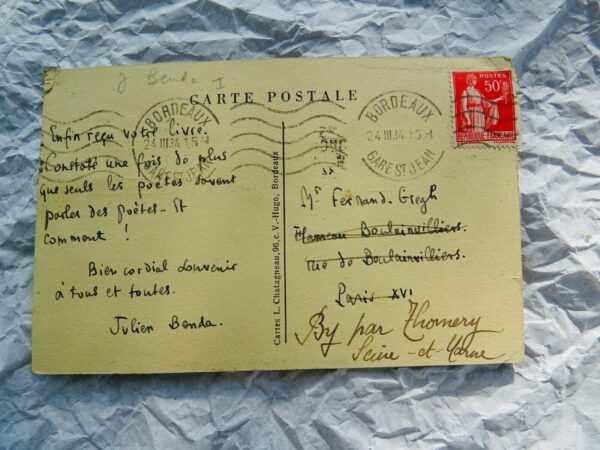 J Benda I
CARTE POSTALE
BORDEAUX
24 III 34 15 H
GARE ST JEAN
BORDEAUX
24 III 34 15 H
GARE ST JEAN
POSTES
50c
REPUBLIQUE FRANÇAISE
Enfin reçu votre livre.
Constaté une fois de plus
que seuls les poètes savent
parler des poètes.. Et
comment !
Bien cordial souvenir
à tous et toutes.
Julien Benda.
Cartes L. Chatagneau, 96, c. V.-Hugo, Bordeaux
Mr Fernand. Gregh
Hameau Boulainvilliers.
rue de Boulainvilliers.
Paris XVI
By par Thomery
Seine-et-Marne